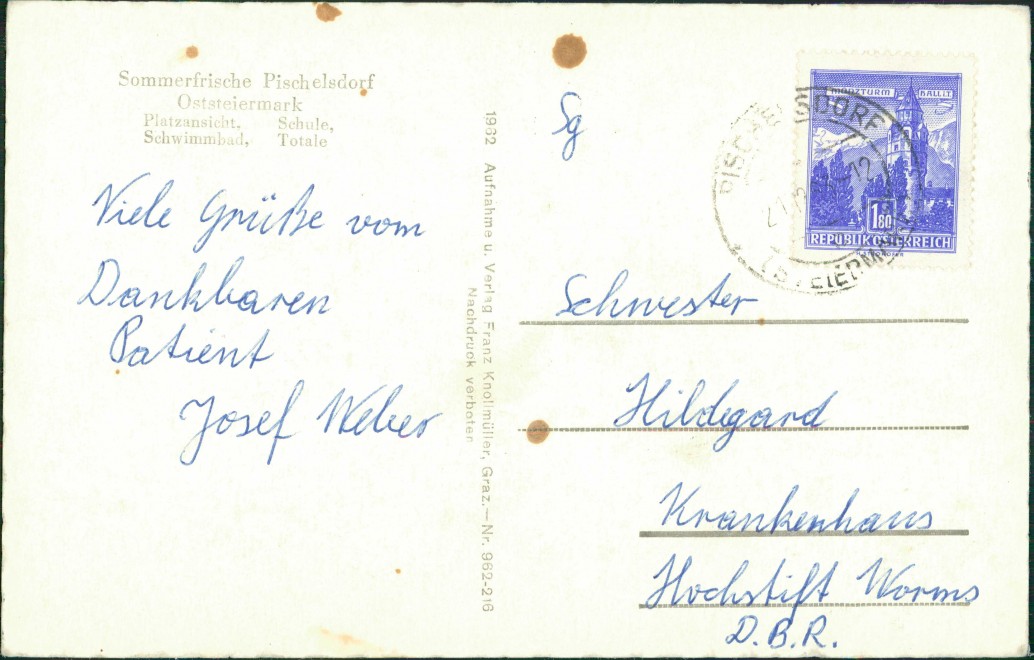 Sommerfrische Pischelsdorf
Oststeiermark
Platzansicht, Schule,
Schwimmbad, Totale
Viele Grüße vom
Dankbaren
Patient
Josef Weber
1962 Aufnahme u. Verlag Franz Knollmüller, Graz.—Nr. 962-216
Nachdruck verboten
MÜNZTURM HALL I.T.
1.80
REPUBLIK ÖSTERREICH
Sg
Schwester
Hildegard
Krankenhaus
Hochstift Worms
D.B.R.